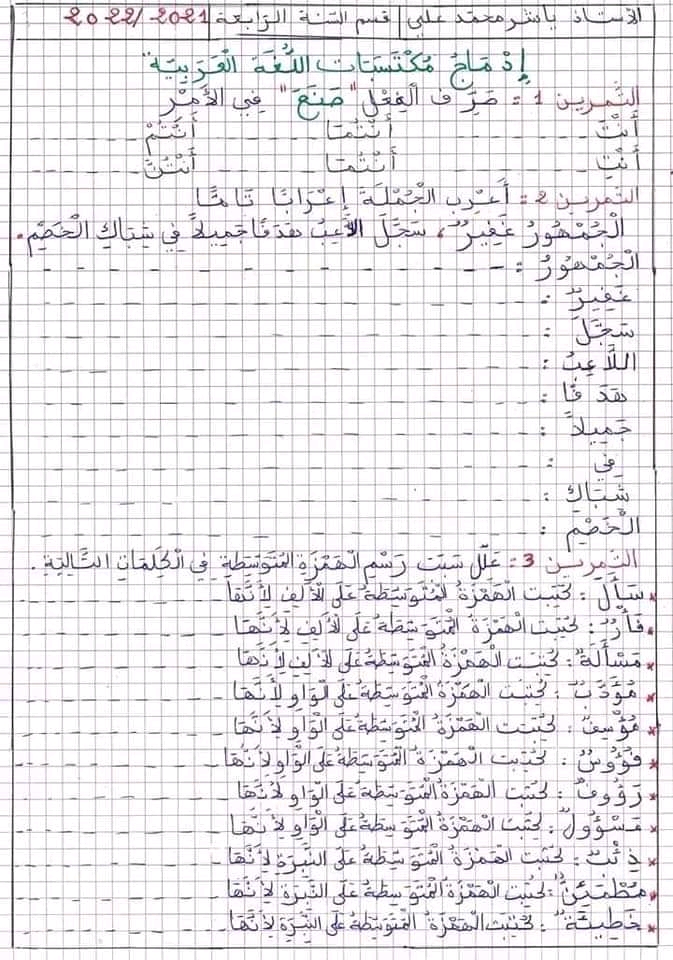 الأستاذ ياسر محمد علي | قسم السنة الرابعة | 2022/2021
إِدْمَاجُ مُكْتَسَبَاتِ اللُّغَةِ الْعَرَبِيَّةِ
التَّمرين 1 : صَرِّف الْفِعْلَ "صَنَعَ" فِي الأَمْرِ
أَنْتَ أَنْتُمَا أَنْتُمْ
أَنْتِ أَنْتُمَا أَنْتُنَّ
التمرين 2 : أَعْرِبِ الْجُمْلَةَ إِعْرَابًا تَامًّا
الْجُمْهُورُ غَفِيرٌ، سَجَّلَ الاَّعِبُ هَدَفًا جَمِيلاً فِي شِبَاكِ الْخَصْمِ.
الْجُمْهُورُ :
غَفِيرٌ :
سَجَّلَ :
اللاَّعِبُ :
هَدَفًا :
جَمِيلاً :
فِي :
شِبَاكِ :
الْخَصْمِ :
التمرين 3 : عَلِّلْ سَبَبَ رَسْمِ الْهَمْزَةِ الْمُتَوَسِّطَةِ فِي الْكَلِمَاتِ التَّالِيَةِ.
* سَأَلَ : كُتِبَتِ الْهَمْزَةُ الْمُتَوَسِّطَةُ عَلَى الْأَلِفِ لِأَنَّهَا
* فَأْرٌ : كُتِبَتِ الْهَمْزَةُ الْمُتَوَسِّطَةُ عَلَى الْأَلِفِ لِأَنَّهَا
* مَسْأَلَةٌ : كُتِبَتِ الْهَمْزَةُ الْمُتَوَسِّطَةُ عَلَى الْأَلِفِ لِأَنَّهَا
* مُؤَدَّبٌ : كُتِبَتِ الْهَمْزَةُ الْمُتَوَسِّطَةُ عَلَى الْوَاوِ لِأَنَّهَا
* مُؤْسِفٌ : كُتِبَتِ الْهَمْزَةُ الْمُتَوَسِّطَةُ عَلَى الْوَاوِ لِأَنَّهَا
* فُؤُوسٌ : كُتِبَتِ الْهَمْزَةُ الْمُتَوَسِّطَةُ عَلَى الْوَاوِ لِأَنَّهَا
* رَؤُوفٌ : كُتِبَتِ الْهَمْزَةُ الْمُتَوَسِّطَةُ عَلَى الْوَاوِ لِأَنَّهَا
* مَسْؤُولٌ : كُتِبَتِ الْهَمْزَةُ الْمُتَوَسِّطَةُ عَلَى الْوَاوِ لِأَنَّهَا
* ذِئْبٌ : كُتِبَتِ الْهَمْزَةُ الْمُتَوَسِّطَةُ عَلَى النَّبْرَةِ لِأَنَّهَا
* مُطْمَئِنٌّ : كُتِبَتِ الْهَمْزَةُ الْمُتَوَسِّطَةُ عَلَى النَّبْرَةِ لِأَنَّهَا
* خَطِيئَةٌ : كُتِبَتِ الْهَمْزَةُ الْمُتَوَسِّطَةُ عَلَى النَّبْرَةِ لِأَنَّهَا